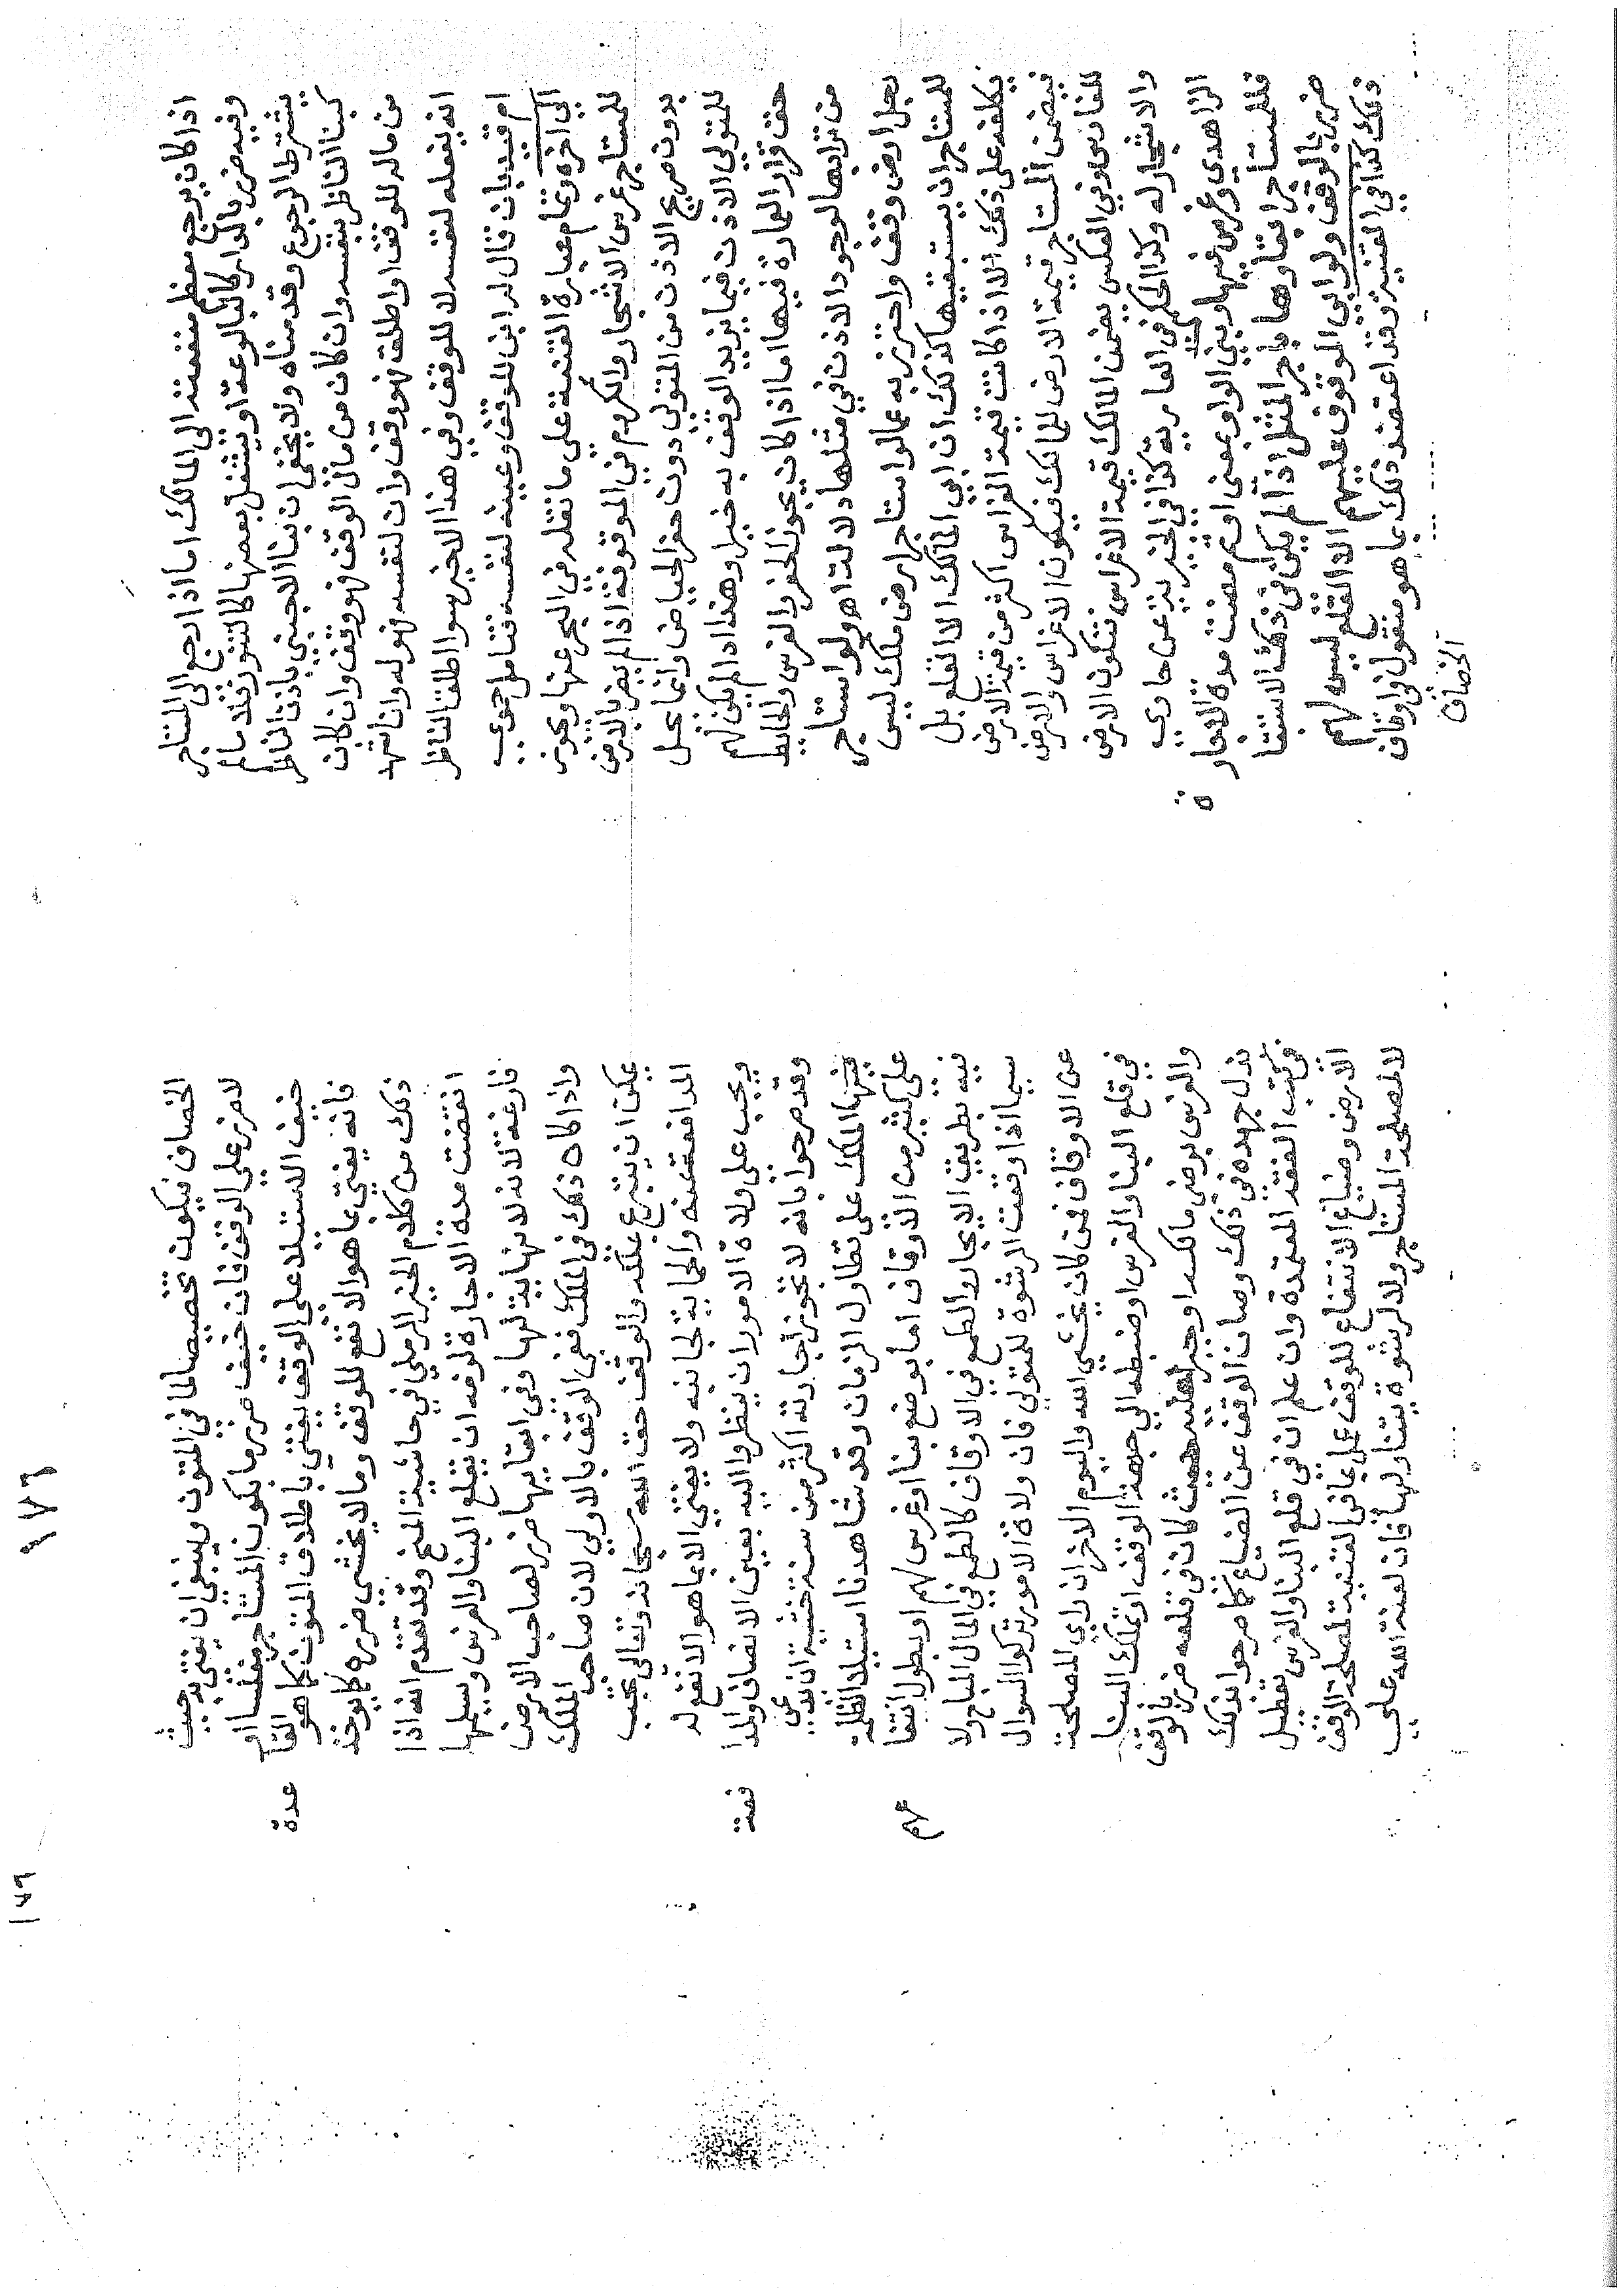 اذا كان يرجع معظم منفعته الى المالك اما اذا رجع الى المستاجر
وفيه ضرر بالدار كالبالوعة او يشغل بعضها كالتنور فلا مالم
يشترط الرجوع وقد مناه ولا يخفى ان بنا الاجنبي باذن الناظر
كبنا الناظر بنفسه وان كان من مال الوقف فهو وقف وان كان
من ماله للوقف او اطلقه فهو وقف وان لنفسه فهو له وان اشهد
انه يفعله لنفسه لا للوقف وفي هذا الاخير سوا اطلق الناظر
ام قيد بان قال له ابن للوقف وعينه لنفسه فتامل حموي
الى اخره وتمام عبارة القنية على ما نقله في البحر عنها ويجوز
للمستاجر غرس الاشجار والكروم في الموقوفة اذا لم يضر بالارض
بدون صريح الاذن من المتولي دون حفر الحياض وانما يحل
للمتولي الاذن فيما يزيد الوقف به خيرا وهذا اذا لم يكن لهم
حق قرار العمارة فيها اما اذا كان يجوز الحفر والغرس والحايط
من ترابها لوجود الاذن في مثلها دلالة اهـ ولو استاجر
رجل ارض وقف واحترز به عما لو استاجر ارض ملك ليس
للمستاجر ان يستبقيها كذلك ان ابى المالك الا القلع بل
يكلفه على ذلك الا اذا كانت قيمة الغراس اكثر من قيمة الارض
فيضمن المستاجر قيمة الارض للمالك فيكون الاغراس والارض
للغارس وفي العكس يضمن المالك قيمة الاغراس فتكون الارض
والاشجار له وكذا الحكم في العارية كذا في الخيرية عن حاوي
الزاهدي وغرس فيها وبنى الواو بمعنى او ثم مضت مدة الاجارة
فللمستاجر ابقاوها باجر المثل اذا لم يكن في ذلك الاستبقا
ضرر بالوقف ولو ابى الموقوف عليهم الا القلع ليس لهم
ذلك كذا في القنية وقد اعتمد ذلك بما هو منقول في اوقاف
الخصاف
الخصاف فيكون تخصيصا لما في المتون وينبغي ان يفتى به حيث
لا ضرر على الوقف فان خيف ضرر ما بكون المستاجر مفلسا او
خيف الاستيلا على الوقف يفتى باطلاق المتون كما هو القا
عدة
فانه يفتى بما هو الانفع للوقف وما لا يخشى ضرره كما يوخذ
ذلك من كلام الخير الرملي في حاشية المنح وقد تقدم انه اذا
انقضت مدة الاجارة لزمه ان يقلع البنا والغرس ويسلمها
فارغة لانه لا نهاية لها وفي ابقايها ضرر لصاحب الارض
واذا كان ذلك في الملك ففي الوقف بالاولى لان صاحب الملك
يمكن ان يتبرع بملكه والوقف حق الله سبحانه وتعالى يجب
المدافعة عنه والحماية لجانبه ولا يفتى الا بما هو الانفع له
ويجب على ولاة الامور ان ينظروا اليه بعين الانصاف والمدا
فعة
وقد صرحوا بانه لا تجوز اجارته اكثر من سنة خشية ان يدعي
فيها الملك على تطاول الزمان وقد شاهدنا استيلا الظلمة
على كثير من الاوقاف اما بوضع بنا او غرس لهم او بطول انتفا
عهم
فيه بطريق الايجار والطمع في الاوقاف كالطمع في المال المباح ولا
سيما اذا وقعت الرشوة للمتولي فان ولاة الامور تركوا السوال
عن الاوقاف فمن كان يخشى الله واليوم الاخر ان راى المصلحة
في قلع البنا والغرس او ضبطه الى جهة الوقف او تملك البنا
والغرس برضى مالكه او جبرا عليه حيث كان في قلعه ضرر بالوقف
بذل جهده في ذلك وصان الوقف عن الضياع كما صرحوا بذلك
في كتب الفقه المعتمدة وان علم ان في قلع البنا والغرس تعطيل
الارض وضياع الانتفاع للوقف عمل بما في القنية لمصلحة الوقف
لا لمصلحة المستاجر ولا لرشوة يتناولها فان لعنة الله على
١٧٦
١٧٦